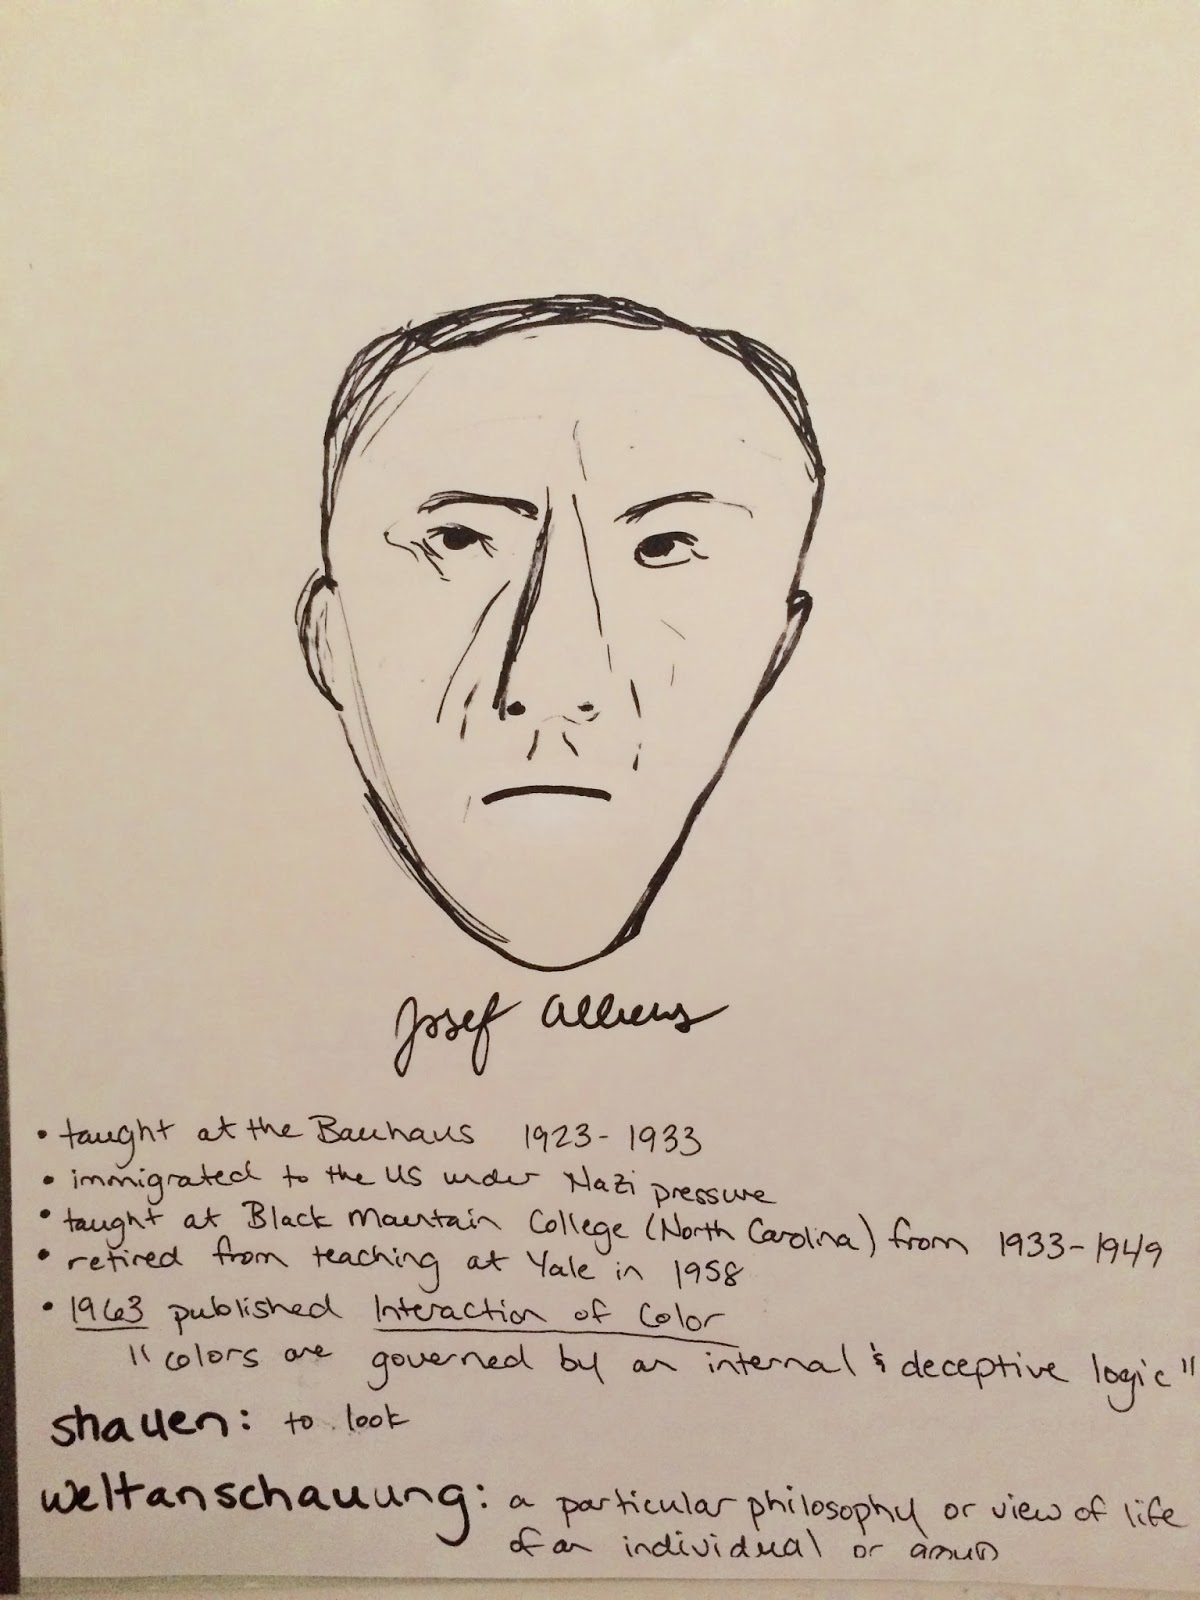 Josef Albers
• taught at the Bauhaus 1923-1933
• immigrated to the US under Nazi pressure
• taught at Black Mountain College (North Carolina) from 1933-1949
• retired from teaching at Yale in 1958
• 1963 published Interaction of Color
"colors are governed by an internal & deceptive logic"
shauen: to look
weltanschauung: a particular philosophy or view of life
of an individual or group